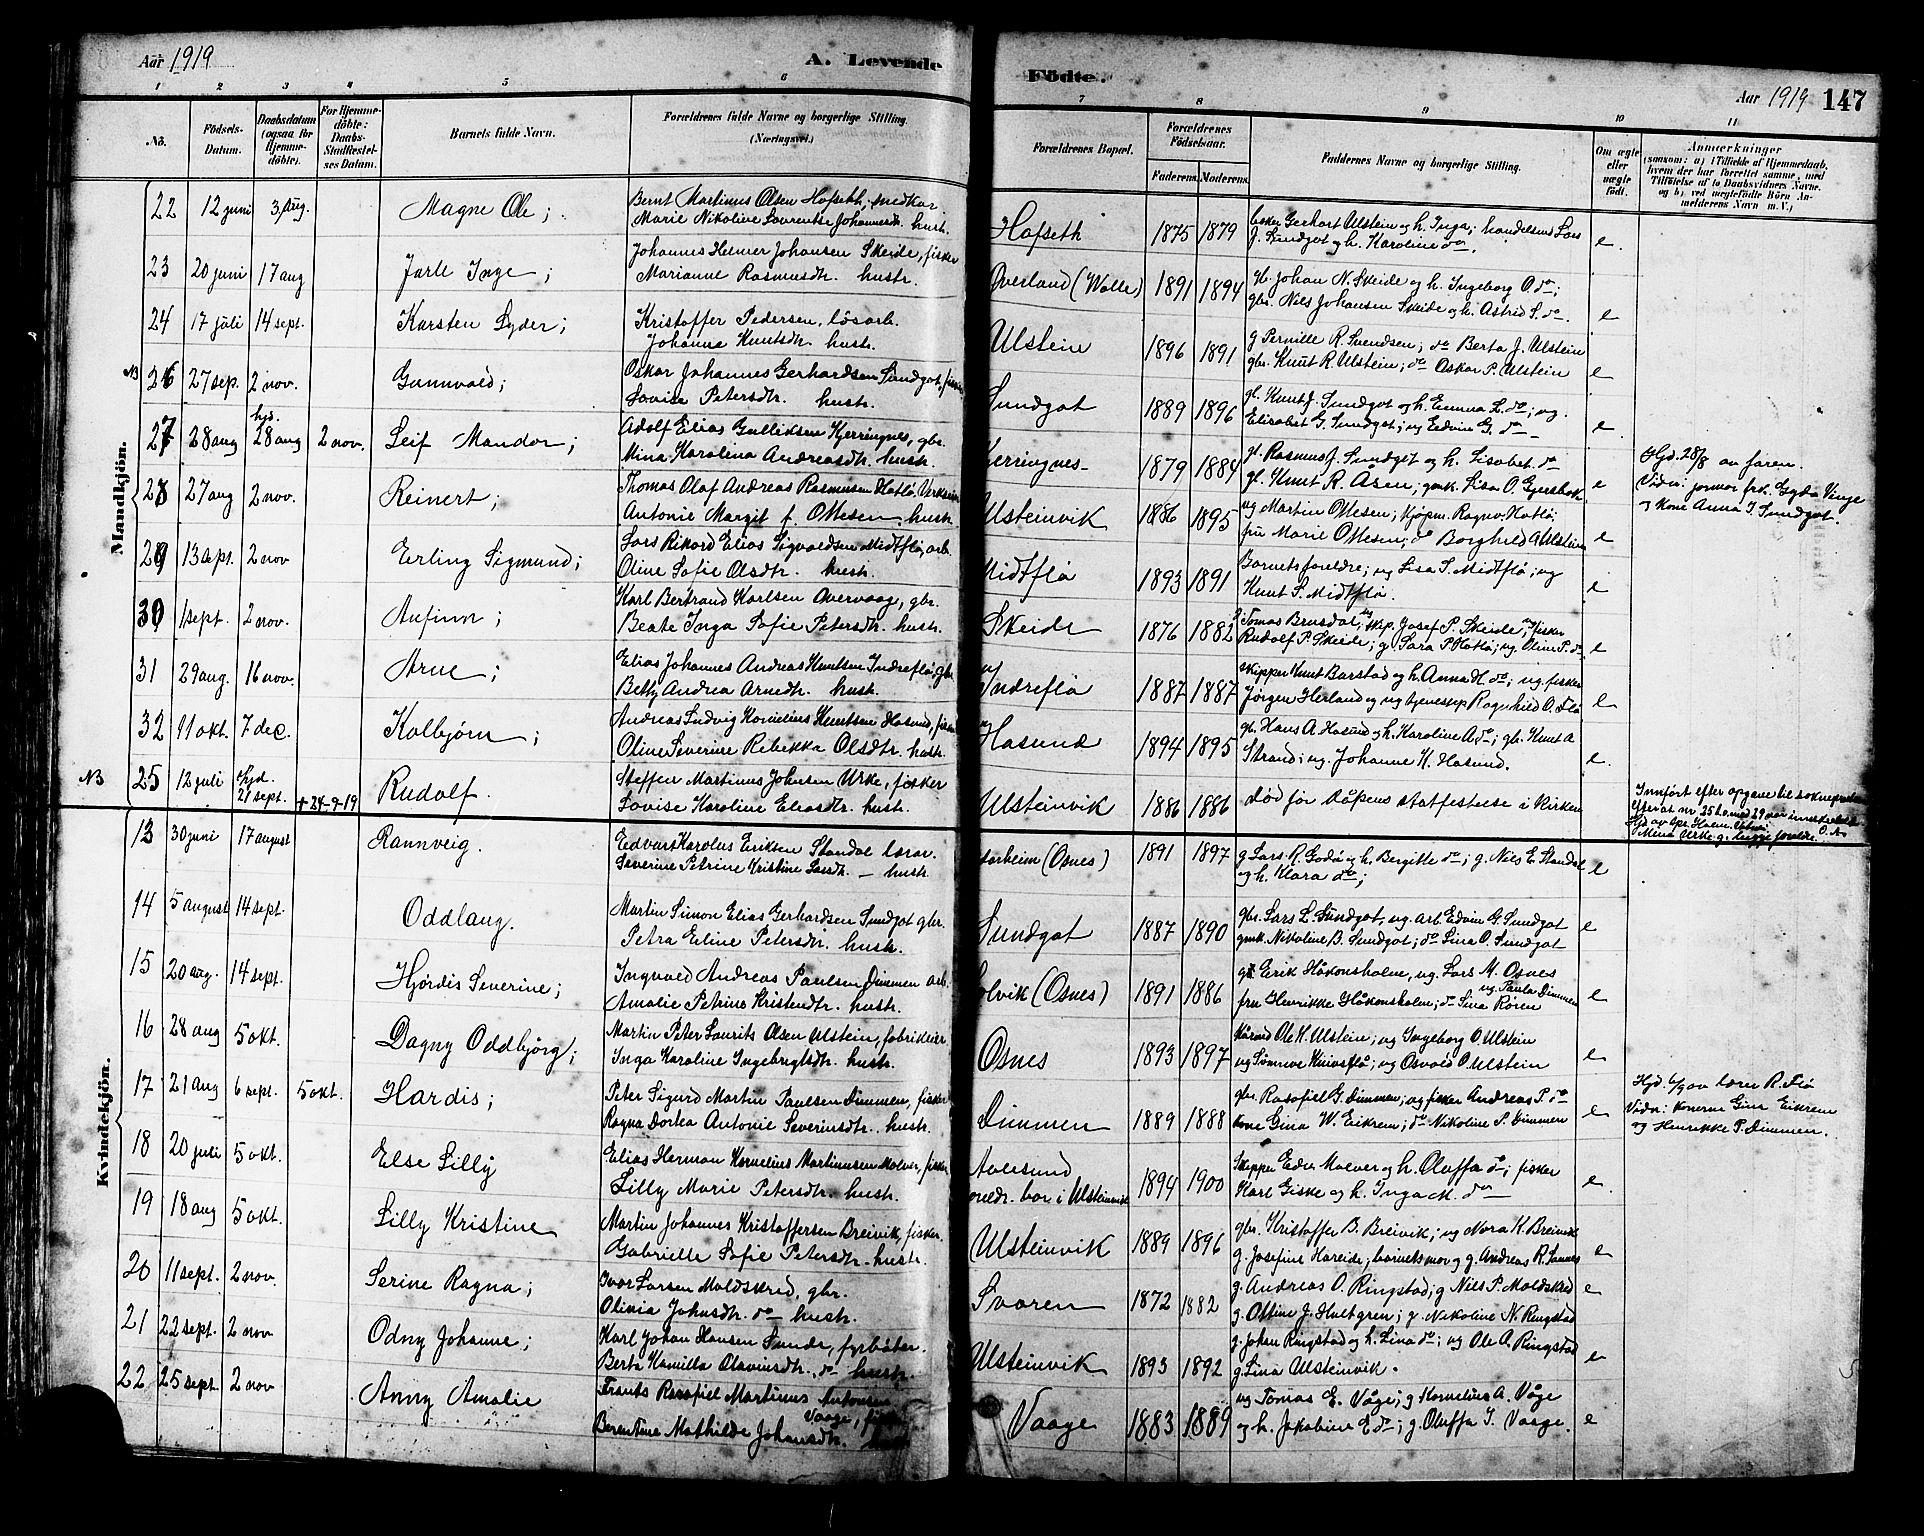 Aar 1919
A. Levende
Födte.
Aar 1919
147
1 2 3 4 5 6 7 8 9 10 11
No.
Födsels-Datum.
Daabsdatum (ogsaa for Hjemme-döbte).
For Hjemme-döbte: Daabs-Stadfæstel-ses Datum.
Barnets fulde Navn.
Forældrenes fulde Navne og borgerlige Stilling. (Næringsvei.)
Forældrenes Bopæl.
Forældrenes Födselsaar.
Faderens. Moderens.
Faddernes Navne og borgerlige Stilling.
Om ægte eller uægte födt.
Anmærkninger
(saasom: a) i Tilfælde af Hjemmedaab, hvem der har forrettet samme, med Tilföielse af to Daabsvidners Navne, og b) ved uægtefödte Börn An-melderens Navn m. V.)
Mandkjön.
22 12 juni 3 aug. Magne Ole; Bernt Martinus Olsen Hofseth, snedker
Marie Nikoline Lavrentse Johannesdr. hustr.
Hofseth 1875 1879 Gerhart Ulstein og h. Inga; handelsm Lars
J. Sundgot og h. Karoline do. e.
23 20 juni 17 aug Jarle Inge; Johannes Helmer Johansen Skeide, fisker
Marianne Rasmusdtr. hustr.
Överland (Walle) 1891 1894 gb. Johan N. Skeide og h. Ingeborg O do;
gbr. Nils Johansen Skeide og h. Astrid S. do. e
24 17 juli 14 sept. Karsten Lyder; Kristoffer Pedersen, lösarb.
Johanne Knutsdtr. hustr.
Ulstein 1896 1891 g Pernille R. Svendsen; do Berta J. Ulstein
gbr. Knut R. Ulstein; do Oskar P. Ulstein e
NB 26 27 sep. 2 nov. Gunnvald; Oskar Johannes Gerhardsen Sundgot, fisker
Lovise Petersdtr. hustr.
Sundgot 1889 1896 gb. Knut J. Sundgot og h. Emma L. do; ug.
Elisabet G. Sundgot; ug Edvin G. do e.
27 28 aug hjd. 28 aug 2 nov. Leif Mandor; Adolf Elias Gulliksen Kjerringnes, gbr.
Mina Karolina Andreasdtr. hustr.
Kjerringnes 1879 1884 gb. Rasmus J. Sundgot og h. Lisabet do
gb. Knut R. Åsen; gmk. Lisa O. Gjersbok e
Hjd. 28/8 av faren.
Vidn: jormor frk. Gyda Vinje
og kone Anna J. Sundgot.
28 27 aug 2 nov. Reinert; Thomas Olaf Andreas Rasmusen Hatlö,
Antonie Margit f. Ottesen, hustr.
Ulsteinvik 1886 1895 ug Martin Ottesen; kjöpm. Ragnv. Hatlö;
fru Marie Ottesen; do Borghild A Ulstein e
29 13 sept. 2 nov Erling Sigmund; Lars Rikard Elias Sigvaldsen Midtflö, arb.
Oline Sofie Olsdtr. hustr.
Midtflö 1893 1891 Barnets foreldre; ug Lisa S. Midtflö; ug
Knut S. Midtflö. e
30 1 sept. 2 nov. Anfinn; Karl Bertrand Karlsen Overvaag, gbr.
Beate Inga Sofie Petersdtr. hustr.
Skeide 1876 1882 Tomas Brusdal; skip. Josef P. Skeide, ug fisker
Rudolf P. Skeide; g Sara P. Hatlö; ug. Oline P. do. e
31 29 aug. 16 nov. Arne; Elias Johannes Andreas Knutsen Indreflö, gbr.
Betty Andrea Arnedtr. hustr.
Yndreflö 1887 1887 skipper Knut Barstad og h. Anna H. do; ug. fisker
Jörgen Herland og ug tjenestep Ragnhild O. Flö e
32 11 okt. 7 dec. Kolbjörn; Andreas Ludvig Kornelius Knutsen Hasund, fisk
Oline Severine Rebekka Olsdtr. hustr.
Hasund 1894 1895 gb. Hans A Hasund og h. Karoline A do; gb. Knut A
Strand; ug. Johanne K. Hasund. e.
NB 25 12 juli hjd. 21 sept. + 24-9-19 Rudolf. Steffen Martinus Johnsen Urke, fisker
Lovise Karoline Eliasdtr. hustr.
Ulsteinvik 1886 1886 död för dåpens statfestelse i kirken
Innfört efter opgave til sokneprest
Kvindekjön.
13 30 juni 17 august Rannveig. Edvart Karolus Eriksen Standal lærer.
Severine Petrine Kristine Larsdtr. — hustr.
(Osnes) 1891 1897 g Lars R. Godö og h. Bergitte do; g. Nils E. Standal
og h. Klara do; e
14 5 august 14 sept. Oddlaug. Martin Simon Elias Gerhardsen Sundgot gbr.
Petra Eline Petersdtr. hustr.
Sundgot 1887 1890 gbr. Lars L. Sundgot, ug. arb. Edvin G. Sundgot
gmk. Nikoline B. Sundgot; do Lina O. Sundgot e
15 20 aug. 14 sept. Hjördis Severine; Ingvald Andreas Paulsen Dimmen arb.
Amalie Petrine Kristendtr. hustr.
(Osnes) 1891 1886 g Erik Håkonsholm, ug. Lars M. Osnes
ug. Paula Dimmen
fru Henrikke Håkonsholm; do Sina Rören e
16 28 aug 5 okt. Dagny Oddbjörg; Martin Peter Laurits Olsen Ulstein, fabrikeier
Inga Karoline Ingebregtsdtr. hustr.
Osnes 1893 1897 Ole K. Ulstein; ug Ingeborg O. Ulstein
ug Synnøve Knivsflå; ug Osvald O. Ulstein e
17 21 aug 6 sept. 5 okt. Hardis; Peter Sigurd Martin Paulsen Dimmen, fisker
Ragna Dortea Antonie Severinsdtr. hustr.
Dimmen 1889 1888 gbr. Rasofiel G. Dimmen; ug fisker Andreas P. do
kone Gina W. Eikrem; do Nikoline P. Dimmen e
Hjd. 6/9 av lærer R. Flö
Vidn: konerne Gina Eikrem
og Henrikke P. Dimmen.
18 20 juli 5 okt. Else Lilly Elias Herman Kornelius Martinusen Molvær, fisker
Lilly Marie Petersdtr. hustr.
Aalesund
foreldr. bor i Ulsteinvik 1894 1900 Skipper Molvær og h. Oluffa do; fisker
Karl Giske og h. Inga M. do e.
19 18 aug 5 okt. Lilly Kristine Martin Johannes Kristoffersen Breivik, fisker
Gabrielle Sofie Petersdtr. hustr.
Ulsteinvik 1889 1896 gbr. Kristoffer B. Breivik; ug Nora K. Breivik
g. Josefine Hareide; barnets mor og g. Andreas R. Sannes e
20 11 sept. 2 nov. Serine Ragna; Ivar Larsen Moldskred, gbr.
Olivia Johnsdtr. do hustr.
Svoren 1872 1882 g. Andreas O. Ringstad; g Nils P. Moldskred
g. Ottine J. Hultgren; g Nikoline N. Ringstad e
21 22 sept. 2 nov Odny Johanne; Karl Johan Hansen Sunde, fyrböter.
Berta Kamilla Olavinsdtr. do hustr.
Ulsteinvik 1893 1892 g. Johan Ringstad og h. Lina do; ug Ole A. Ringstad
g. Lina Ulsteinvik. e
22 25 sept. 2 nov Anny Amalie Frants Rasofiel Martinus Antonsen
Vaage, fisker
Berentine Mathilde Johansdtr. hustr.
Vaage 1883 1889 ug Tomas E. Våge; g Kornelius A. Våge
og h. Jakobine E do; g. Oluffa I. Vaage. e